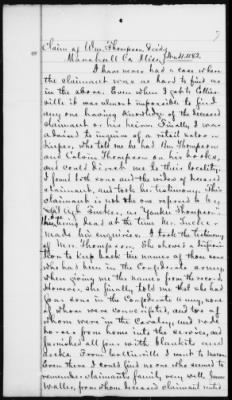 7
Claim of Wm. Thompson, Decd
Marshall Co. Miss.
I have never had a case where
the claimant was as hard to find as
in the above. Even when I got to Collier-
ville it was almost impossible to find
any one having knowledge of the deceased
claimant or his heirs. Finally I was
advised to inquire of a retail
keeper, who told me he had Wm Thompson
and Calvin Thompson on his books,
and could direct me to their locality.
I found both sons and the widow of deceased
claimant, and took her testimony. This
claimant is not the one referred to by
Tucker, as "Yankee Thompson"
dead at the time Mr. Tucker
made his enquiries. I took the testimony
of Mrs Thompson. She showed a disposi-
tion to keep back the names of those sons
who had been in the Confederate army
when giving me the names from the record.
However she finally told me that she had
four sons in the Confederate army, none
of whom were conscripted, and two of
whom were in the Cavalry, and rode
horses from home into the service, and
furnished all four with blankets and
socks. From I went to
Even there I could find no one who seemed to
remember claimants family very well,
Waller, from whom deceased claimant rented